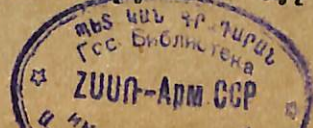 ՊԵՏ ԿԱՆ ԳՐ-ԴԱՐԱՆ
Гос. Библиотека
ՀՍՍՌ-Арм.ССР